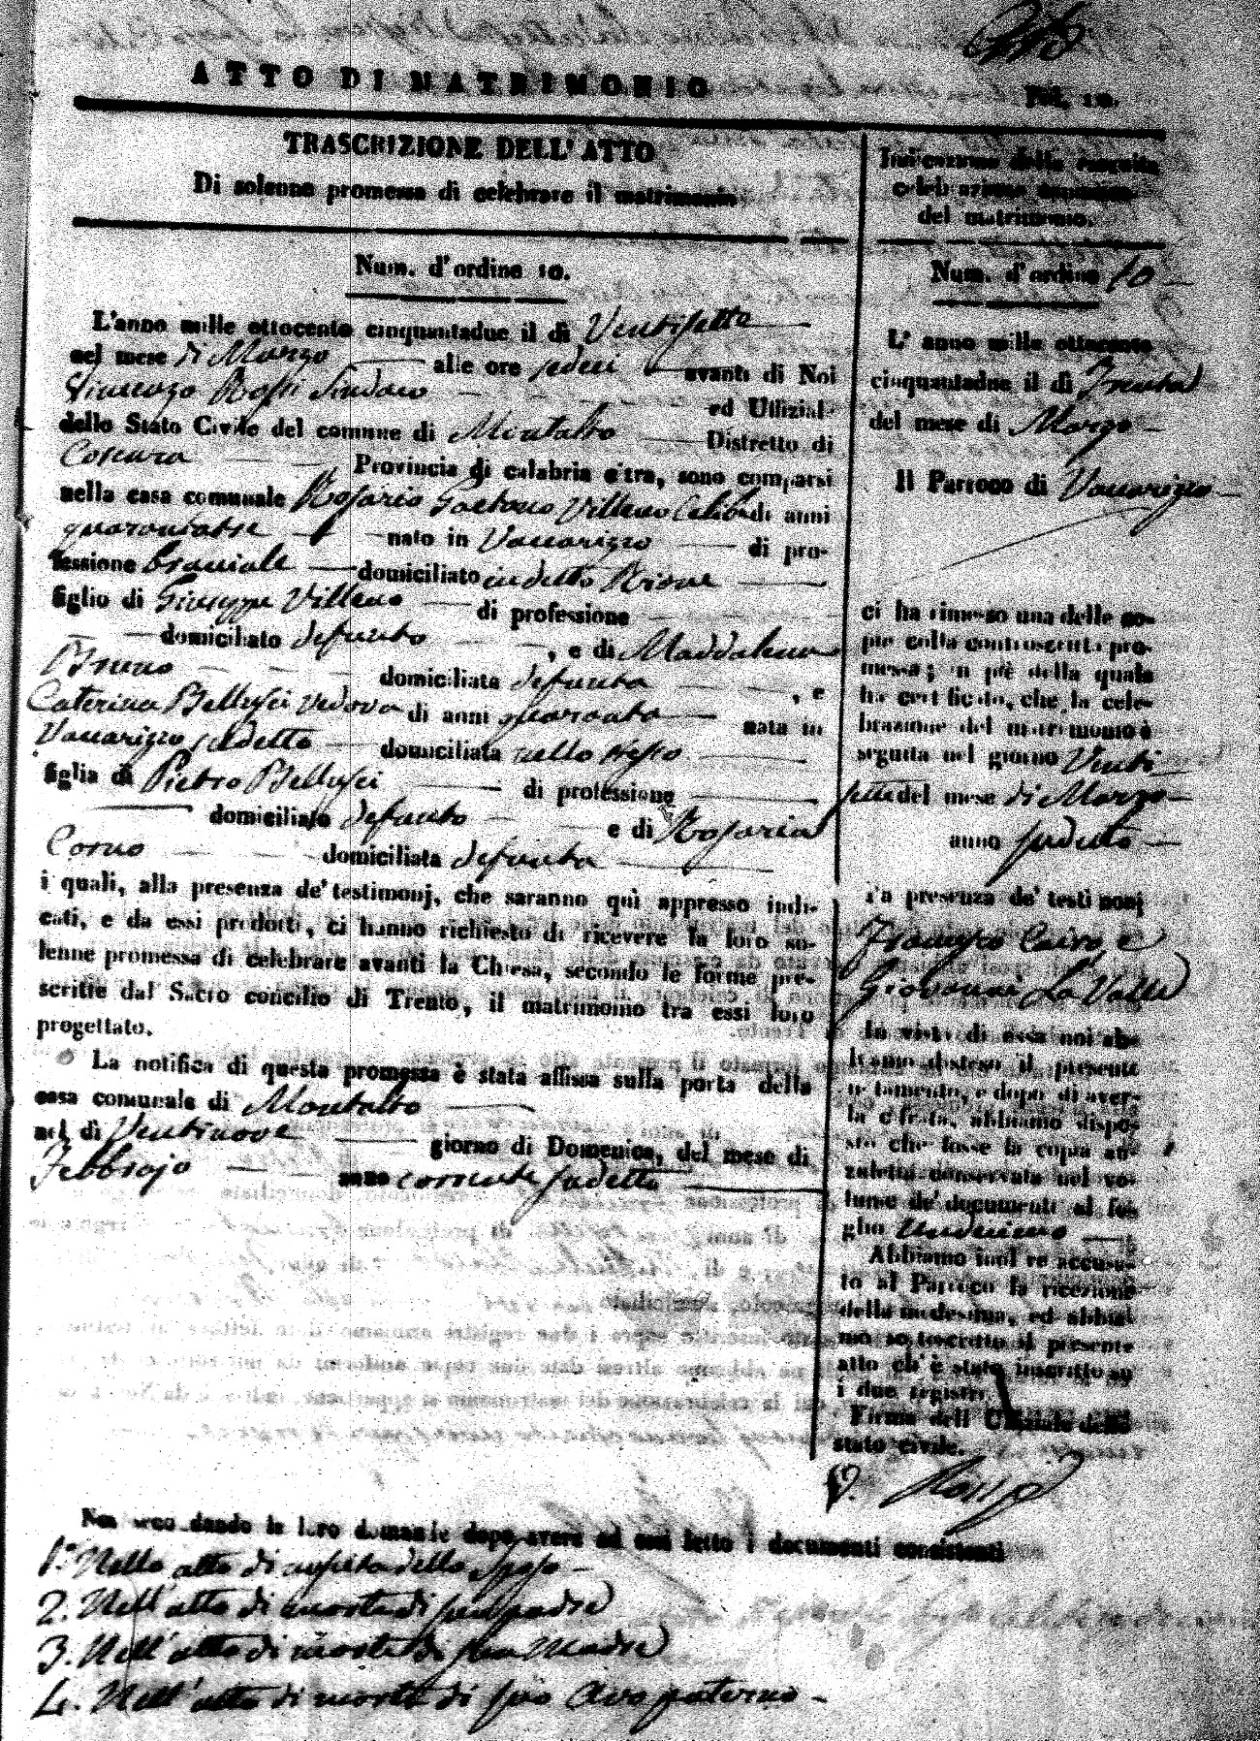 ATTO DI MATRIMONIO
Fol. 10.
TRASCRIZIONE DELL'ATTO
Di solenne promessa di celebrare il matrimonio
Num. d'ordine 10.
L'anno mille ottocento cinquantadue il di Ventisette
nel mese di Marzo alle ore sedici avanti di Noi
Vincenzo Rossi Sindaco ed Uffizial-
dello Stato Civile del comune di Montalto Distretto di
Cosenza Provincia di calabria citra, sono comparsi
nella casa comunale Rosario Gaetano Villano Celibe di anni
nato in Vaccarizzo di pro-
fessione bracciale domiciliato in detto Rione
figlio di Giuseppe Villano di professione
domiciliato defunto , e di Maddalena
Bruno domiciliata defunta , e
Caterina Bellusci Vedova di anni quaranta nata in
Vaccarizzo sudetto domiciliata nello stesso
figlia di Pietro Bellusci di professione
domiciliato defunto e di Rosaria
Corno domiciliata defunta
i quali, alla presenza de' testimonj, che saranno quì appresso indi-
cati, e da essi prodotti, ci hanno richiesto di ricevere la loro so-
lenne promessa di celebrare avanti la Chiesa, secondo le forme pre-
scritte dal Sacro concilio di Trento, il matrimonio tra essi loro
progettato.
La notifica di questa promessa è stata affissa sulla porta della
casa comunale di Montalto
nel dì Ventinove giorno di Domenica, del mese di
Febbrajo anno corrente sudetto
Indicazione della seguita
celebrazione
del matrimonio.
Num. d'ordine 10
L'anno mille ottocento
cinquantadue il dì Trenta
del mese di Marzo
Il Parroco di Vaccarizzo
ci ha rimesso una delle co-
pie della controscritta pro-
messa; in piè della quale
ha certificato, che la cele-
brazione del matrimonio è
seguita nel giorno Venti
sette del mese di Marzo
anno sudetto
in presenza de' testimonj
Francesco Cairo e
Giovanni La Valle
In vista di essa noi ab-
biamo disteso il presente
notamento, e dopo di aver-
la cifrata, abbiamo dispo-
sto che fosse la copia an-
zidetta conservata nel vo-
lume de' documenti al fo-
glio Undecimo
Abbiamo inoltre accusa-
to al Parroco la ricezione
della medesima, ed abbia-
mo sottoscritto il presente
atto ch'è stato inscritto su
i due registri.
Firma dell'Uffiziale dello
stato civile.
V. Rossi
Noi secondando le loro domande dopo avere ad essi letto i documenti consistenti
1.° Nello atto di nascita dello Sposo
2. Nell'atto di morte di suo padre
3. Nell'atto di morte di sua Madre
4. Nell'atto di morte di suo Avo paterno